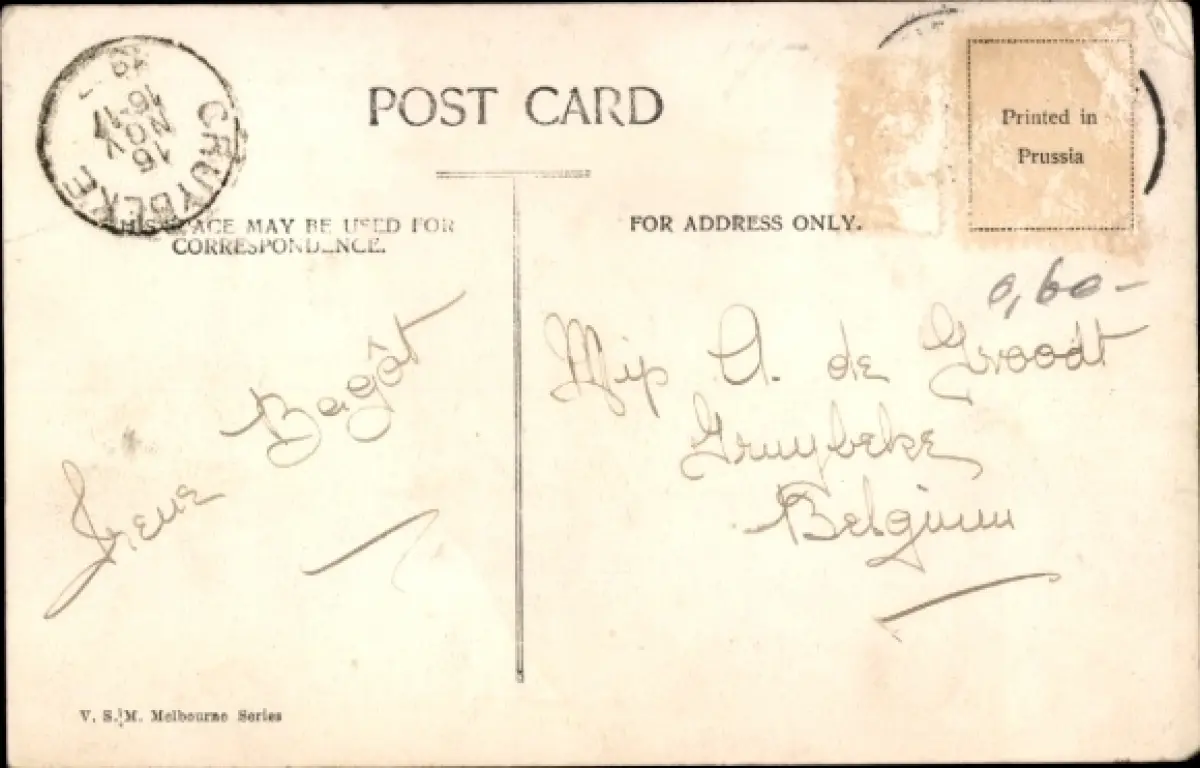 POST CARD
CRUYBEKE
15
NOV
16-17
Printed in
Prussia
THIS SPACE MAY BE USED FOR
CORRESPONDENCE.
FOR ADDRESS ONLY.
0,60-
Irene Bagôt
Miss A. de Groodt
Gruybeke
Belgium
V. S. M. Melbourne Series